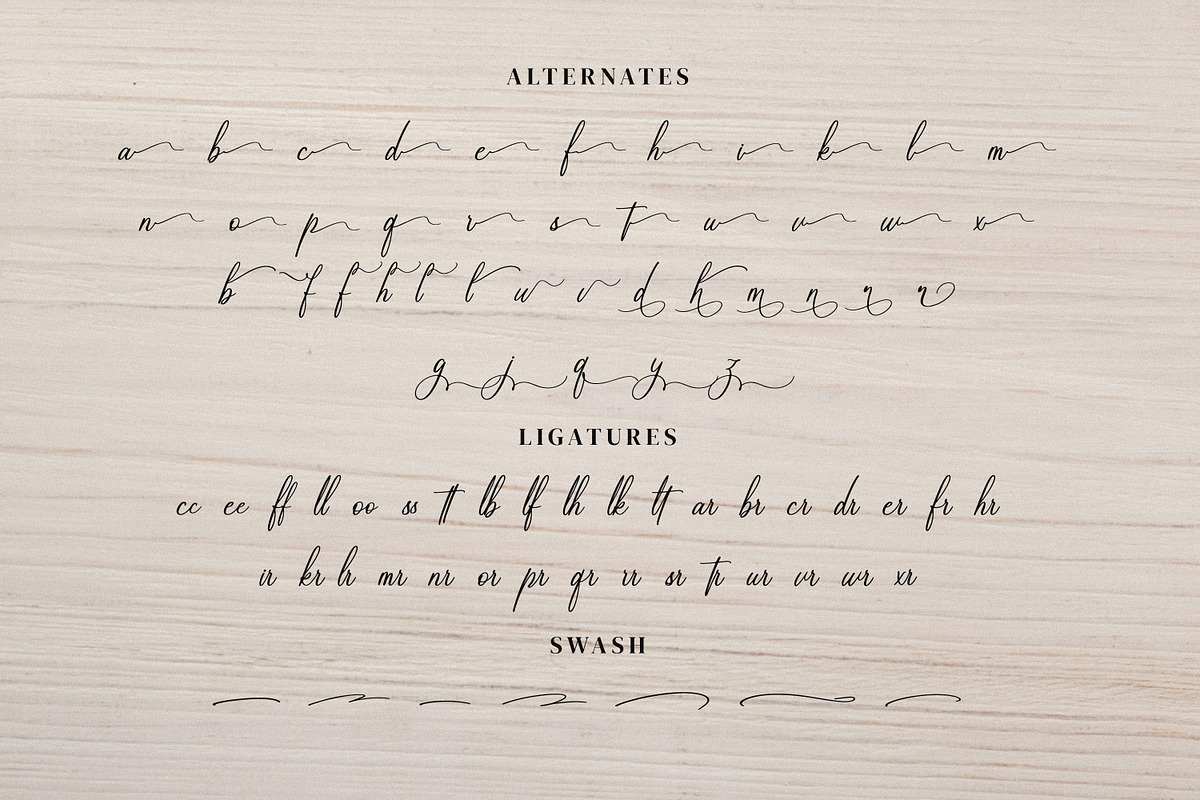 ALTERNATES
a b c d e f h i k l m
n o p q r s t u v w x
b f f h l l u v d h m n r r
g j q y z
LIGATURES
cc ee ff ll oo ss tt lb lf lh lk lt ar br cr dr er fr hr
ir kr lr mr nr or pr qr rr sr tr ur vr wr xr
SWASH